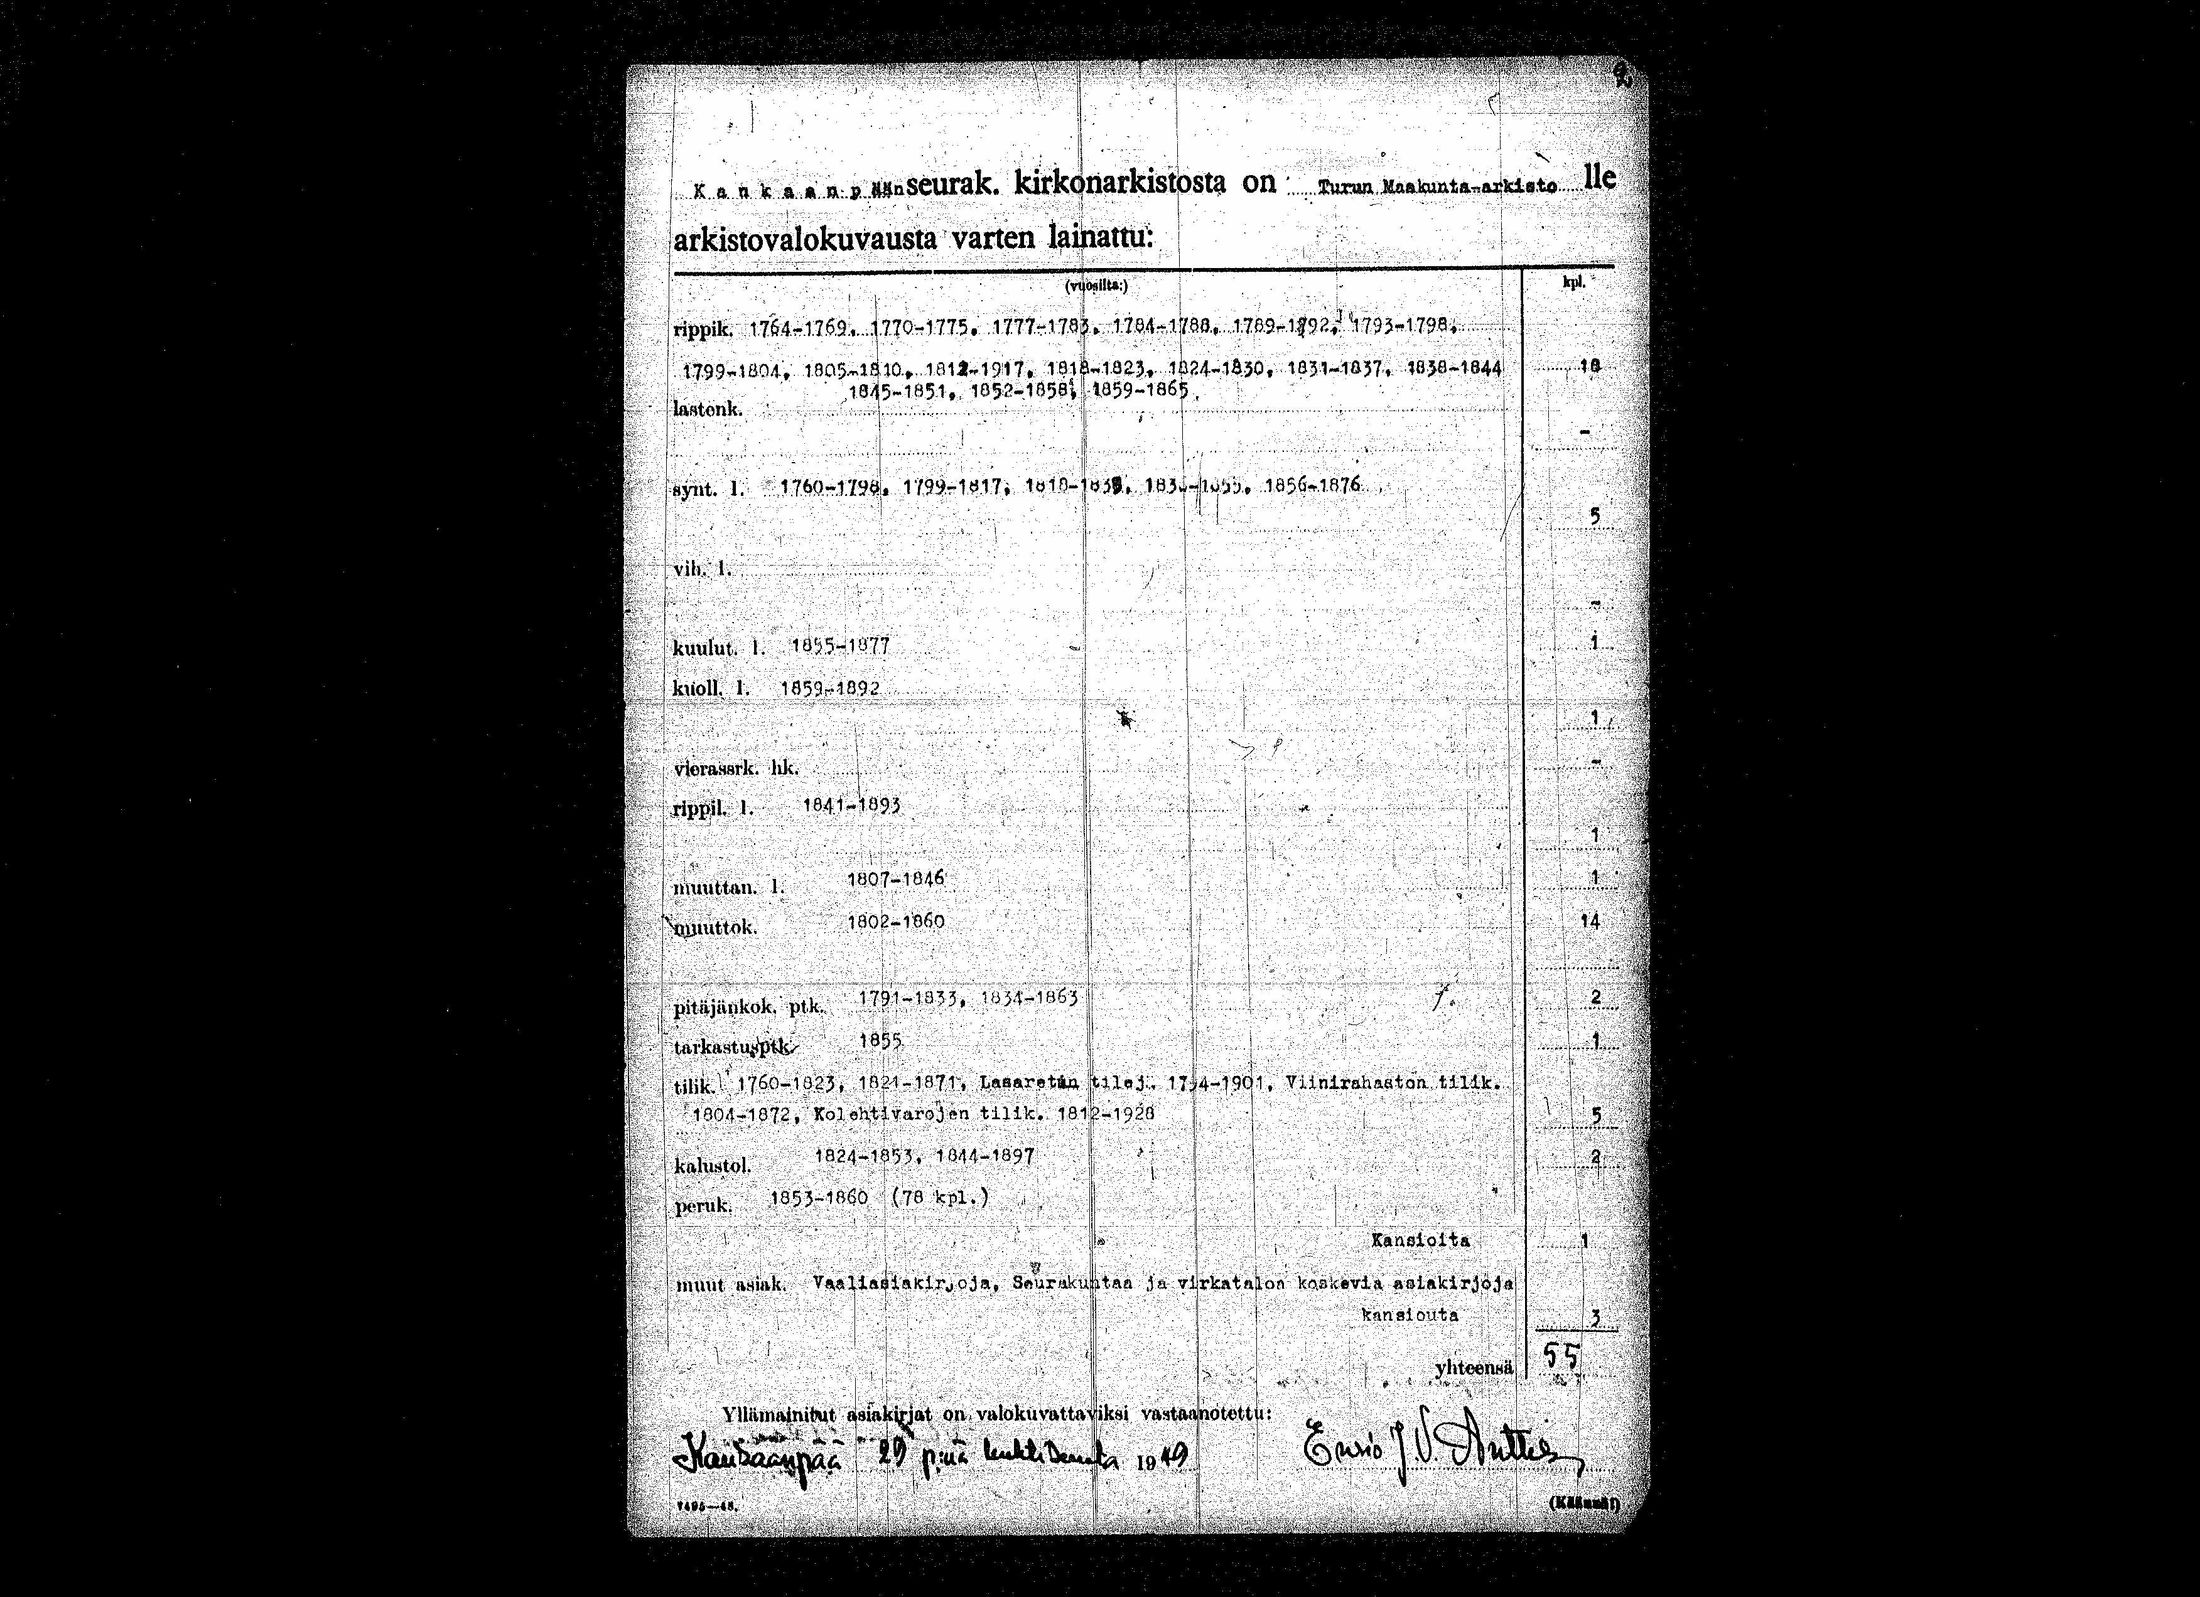 K a n k a a n p äänseurak. kirkonarkistosta on Turun Maakunta-arkisto lle
arkistovalokuvausta varten lainattu:
(vuosilta:) kpl.
rippik. 1764-1769, 1770-1775, 1777-1783, 1784-1788, 1789-1792, 1793-1798,
1799-1804, 1805-1810, 1812-1917, 1818-1823, 1824-1830, 1831-1837, 1838-1844 18
1845-1851, 1852-1858, 1859-1865,
lastenk.
-
synt. l. 1760-1798, 1799-1817, 1856-1876
5
vih. l.
-
kuulut. l. 1855-1877 1
kuoll. l. 1859-1892
1
vierassrk. hk. -
rippil. l. 1841-1893
1
muuttan. l. 1807-1846 1
muuttok. 1802-1860 14
pitäjänkok. ptk. 1791-1833, 1834-1863 2
tarkastusptk. 1855 1
tilik. 1760-1823, 1821-1871, Lasaretin tilej. 1794-1901, Viinirahaston tilik.
1804-1872, Kolehtivarojen tilik. 1812-1928 5
kalustol. 1824-1853, 1844-1897 2
peruk. 1853-1860 (78 kpl.)
Kansioita 1
muut asiak. Vaaliasiakirjoja, Seurakuntaa ja virkataloa koskevia asiakirjoja
kansiouta 3
yhteensä 55
Yllämainitut asiakirjat on valokuvattaviksi vastaanotettu:
Kankaanpää 29 p:nä huhtikuuta 1949 Ensio J.V. Anttila
7495—48. (Käännä!)